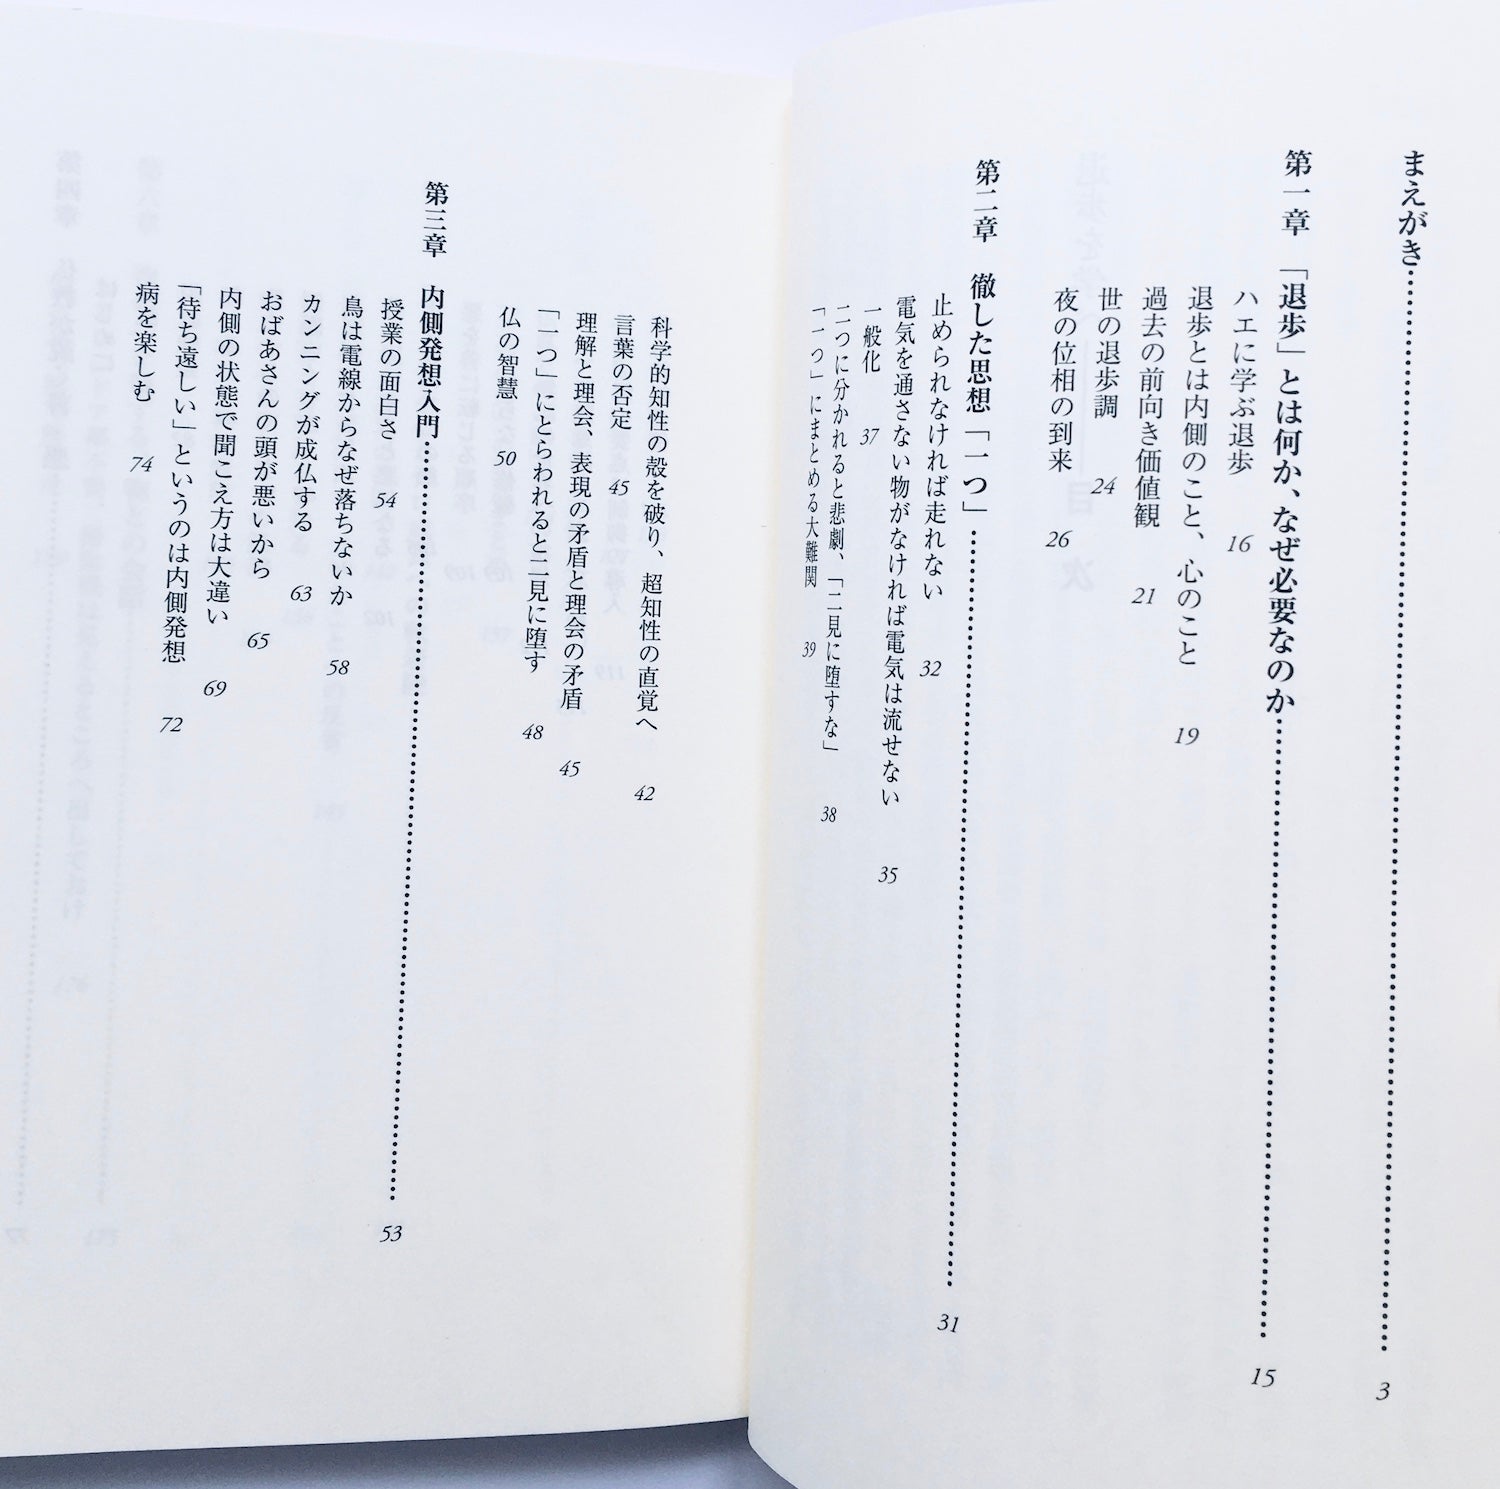 まえがき……… 3
第一章 「退歩」とは何か、なぜ必要なのか……… 15
ハエに学ぶ退歩 16
退歩とは内側のこと、心のこと 19
過去の前向き価値観 21
世の退歩調 24
夜の位相の到来 26
第二章 徹した思想「一つ」……… 31
止められなければ走れない 32
電気を通さない物がなければ電気は流せない 35
一般化 37
二つに分かれると悲劇、「二見に堕すな」 38
「一つ」にまとめる大難関 39
科学的知性の殻を破り、超知性の直覚へ 42
言葉の否定 45
理解と理会、表現の矛盾と理会の矛盾 45
「一つ」にとらわれると二見に堕す 48
仏の智慧 50
第三章 内側発想入門……… 53
授業の面白さ 54
鳥は電線からなぜ落ちないか 58
カンニングが成仏する 63
おばあさんの頭が悪いから 65
内側の状態で聞こえ方は大違い 69
「待ち遠しい」というのは内側発想 72
病を楽しむ 74